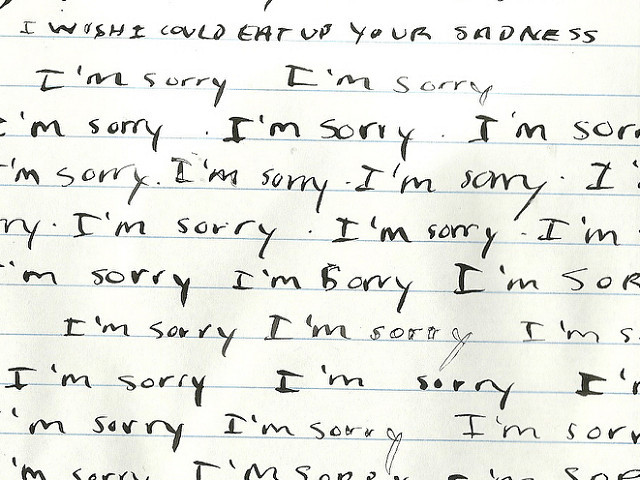 I WISH I COULD EAT UP YOUR SADNESS
I'm sorry I'm sorry
I'm sorry . I'm sorry . I'm sor
'm sorry . I'm sorry . I'm sorry . I
ry . I'm sorry . I'm sorry . I'm
'm sorry I'm Sorry I'm SOR
I'm sorry I'm sorry I'm s
I'm sorry I'm sorry I'
'm sorry I'm sorry I'm sorr
'm sorry I'M Sorry